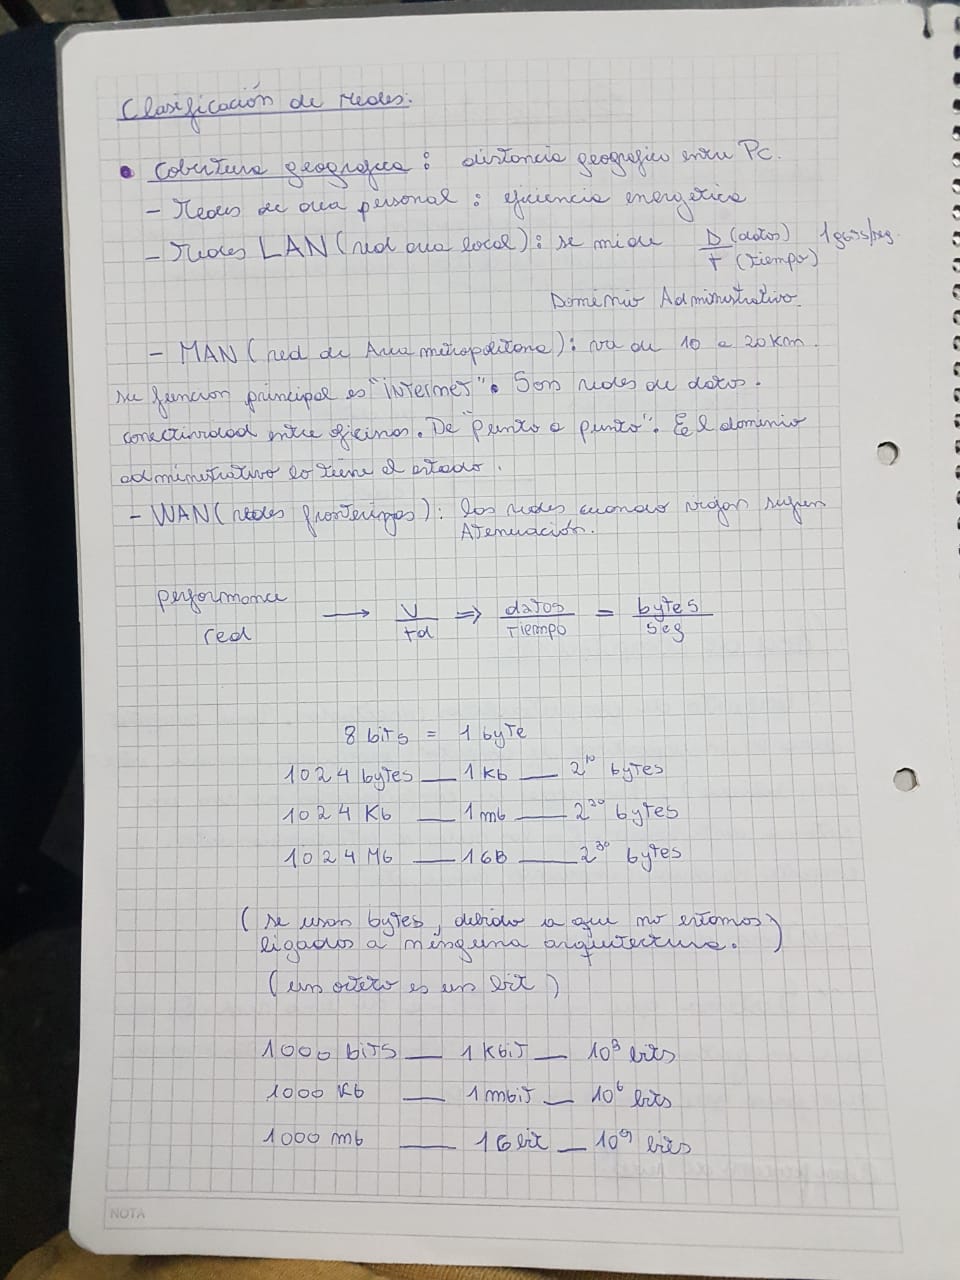 Clasificación de redes:
• Cobertura geografica: distancia geografica entre PC.
- Redes de area personal: eficiencia energetica
- Redes LAN (red area local): se mide D (datos) / T (tiempo) 1
Dominio Administrativo
- MAN (red de Area metropolitana): va de 10 a 20 km.
su funcion principal es "INTERNET". Son redes de datos.
conectividad entre oficinas. De "punto a punto". El dominio
administrativo lo tiene el estado.
- WAN (redes): las redes cuando viajan sufren
Atenuación.
performance
red → V/td ⇒ datos/Tiempo = bytes/seg
8 bits = 1 byte
1024 bytes — 1 Kb — 2¹⁰ bytes
1024 Kb — 1 mb — 2²⁰ bytes
1024 Mb — 1 GB — 2³⁰ bytes
(se usan bytes, debido a que no estamos
ligados a ninguna arquitectura.)
(un octeto es un bit)
1000 bits — 1 Kbit — 10³ bits
1000 Kb — 1 mbit — 10⁶ bits
1000 mb — 1 Gbit — 10⁹ bits
NOTA